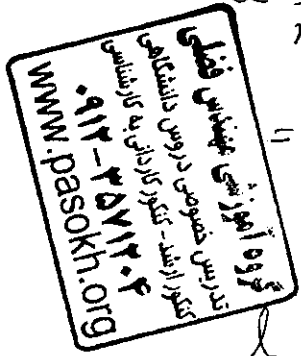 گروه آموزشی مهندس فضلی
تدریس خصوصی دروس دانشگاهی
کنکور ارشد - کنکور کاردانی به کارشناسی
۰۹۱۲-۳۵۷۱۲۰۴
www.pasokh.org